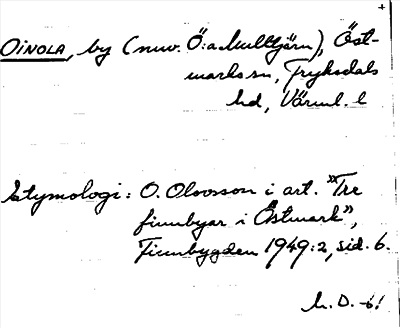 OINOLA, by (nuv. Ö:a Mulltjärn), Öst-
marks sn, Fryksdals
hd, Värml. l
Etymologi: O. Olovsson i art. "Tre
finnbyar i Östmark",
Finnbygden 1949:2, sid. 6.
M. D. -61